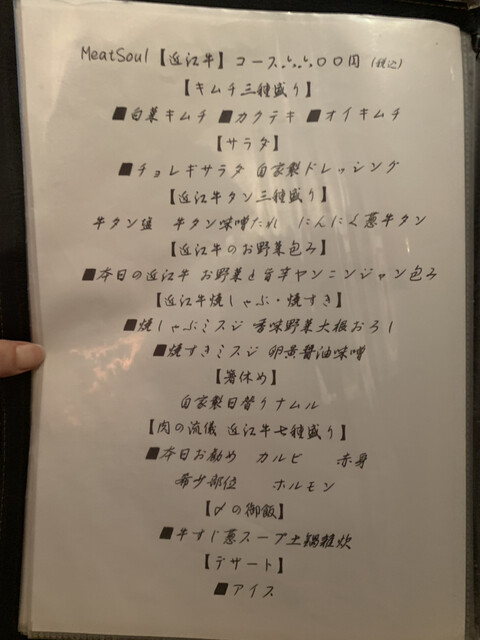 MeatSoul【近江牛】コース5,500円(税込)
【キムチ三種盛り】
■白菜キムチ ■カクテキ ■オイキムチ
【サラダ】
■チョレギサラダ 自家製ドレッシング
【近江牛タン三種盛り】
牛タン塩 牛タン味噌たれ にんにく葱牛タン
【近江牛のお野菜包み】
■本日の近江牛 お野菜と旨辛ヤンニンジャン包み
【近江牛焼しゃぶ・焼すき】
■焼しゃぶミスジ 香味野菜大根おろし
■焼すきミスジ 卵黄醤油味噌
【箸休め】
自家製日替りナムル
【肉の流儀 近江牛七種盛り】
■本日お勧め カルビ 赤身
希少部位 ホルモン
【〆の御飯】
■牛すじ葱スープ土鍋雑炊
【デザート】
■アイス